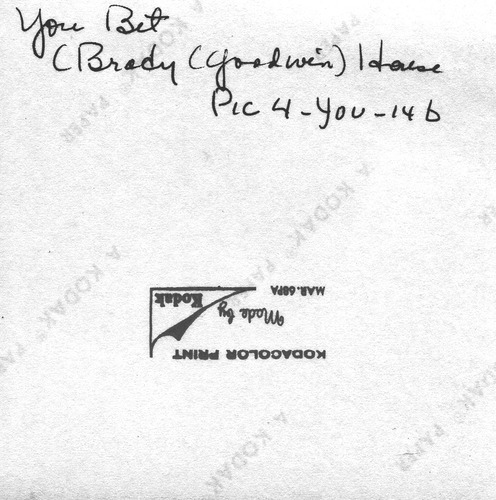 You Bet
(Brady (Goodwin) House
Pic 4-You-14b
A KODAK® PAPER
A KODAK® PAPER
A KODAK® PAPER
A KODAK® PAPER
KODACOLOR PRINT
Made by
Kodak
MAR.68PA